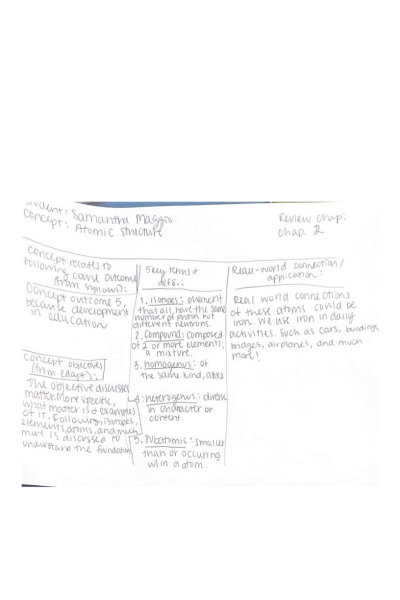 Student: Samantha Maggio
Concept: Atomic structure
Review Chap:
Chap. 2
Concept relates to
following
course outcome
(from syllabus):
Concept outcome 5,
because development
in education
Concept objectives
(from edapt):
The objective discusses
matter. More specific,
what matter is & examples
of it. Following isotopes,
elements, atoms, and much
more is discussed to
understand the foundation
5 key terms &
defs.:
1. Isotopes: element
that all have the same
number of proton but
different neutrons.
2. Compound: composed
of 2 or more elements;
a mixture.
3. homogenus: of
the same kind; alike
4. heterogenus: diverse
in character or
content.
5. Subatomic: smaller
than or occuring
w/in a atom.
Real-world connection/
application:
Real world connections
of these atoms could be
iron. We use iron in daily
activities. Such as cars, buildings
bridges, airplanes, and much
more!